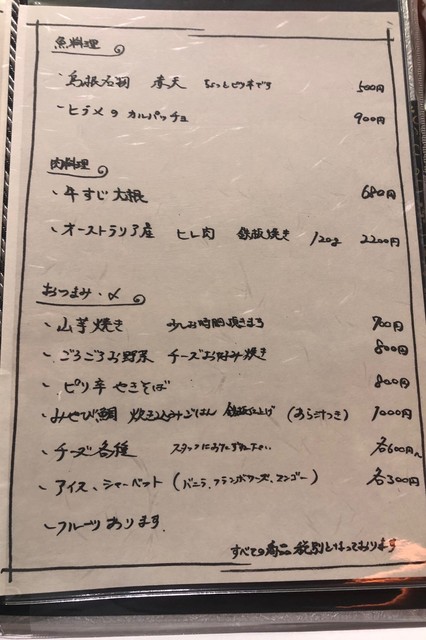 魚料理
・島根名物 赤天 ちょっとピリ辛です 500円
・ヒラメのカルパッチョ 900円
肉料理
・牛すじ大根 680円
・オーストラリア産 ヒレ肉 鉄板焼き 120g 2200円
おつまみ・〆
・山芋焼き 少しお時間頂きます 700円
・ごろごろお野菜 チーズお好み焼き 800円
・ピリ辛やきそば 800円
・みやび鯛 炊き込みごはん 鉄板仕上げ (あら汁つき) 1000円
・チーズ各種 スタッフにおたずね下さい 各600円
・アイス、シャーベット (バニラ、フランボワーズ、マンゴー) 各300円
・フルーツあります。
すべての商品税別となっております